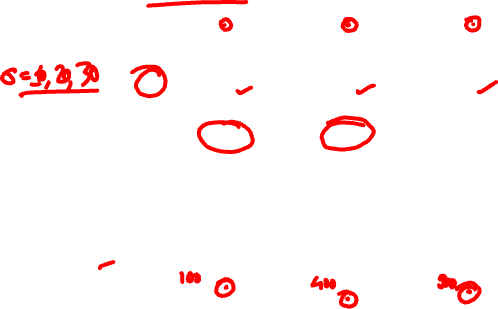 σ = 10, 20, 30
100 400 900